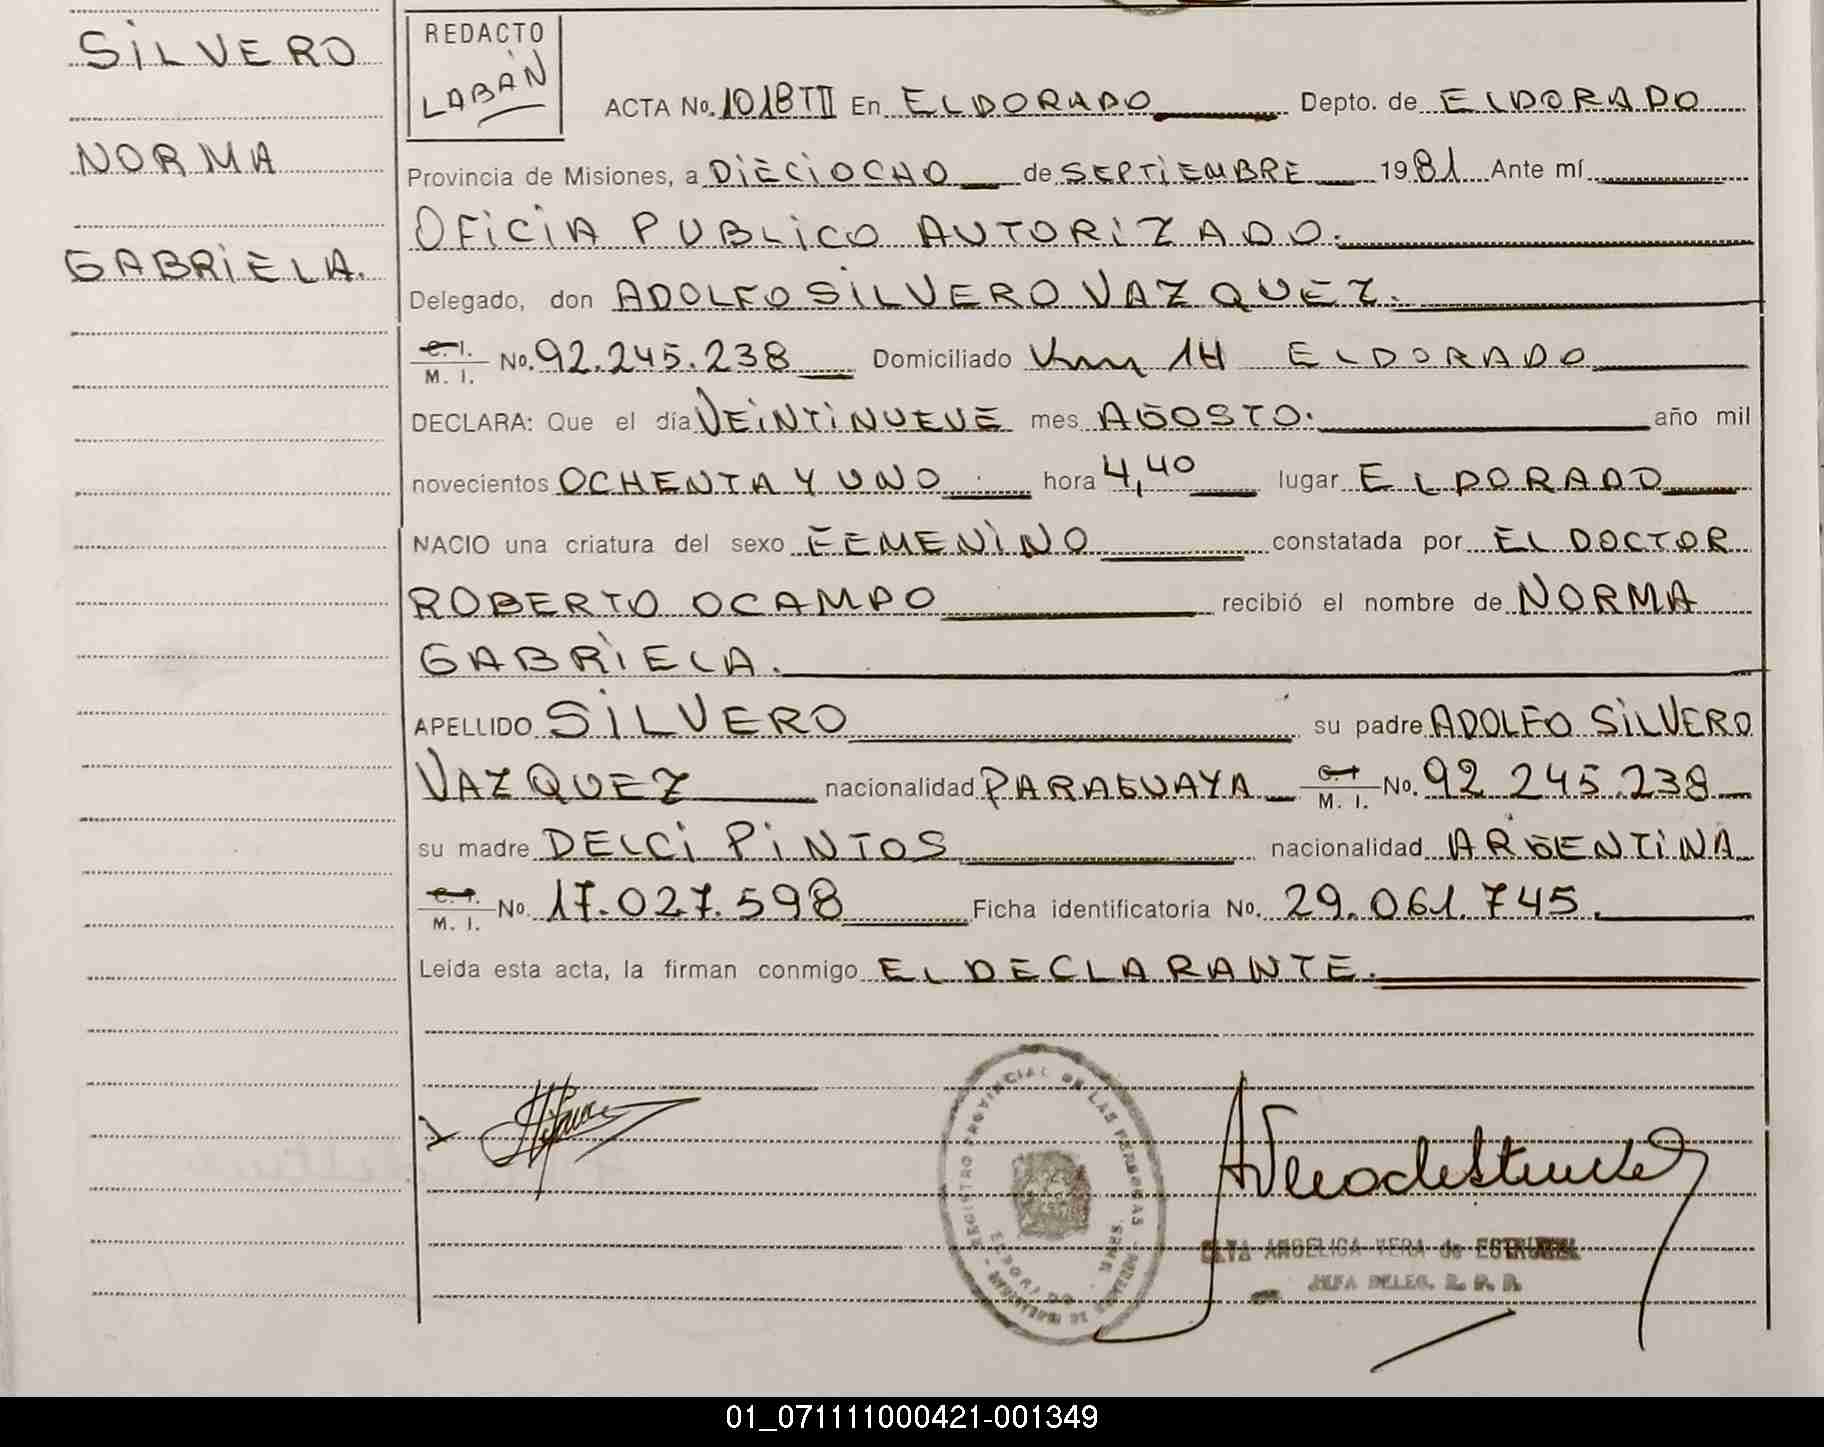 SILVERO
NORMA
GABRIELA.
REDACTO
LABÁN
ACTA No. 1018 TII En ELDORADO Depto. de ELDORADO
Provincia de Misiones, a DIECIOCHO de SEPTIEMBRE 1981 Ante mí
OFICIA PUBLICO AUTORIZADO.
Delegado, don ADOLFO SILVERO VAZQUEZ.
C. I.
M. I. No. 92.245.238 Domiciliado Km 14 ELDORADO
DECLARA: Que el día VEINTINUEVE mes AGOSTO. año mil
novecientos OCHENTA Y UNO hora 4,40 lugar ELDORADO
NACIO una criatura del sexo FEMENINO constatada por EL DOCTOR
ROBERTO OCAMPO recibió el nombre de NORMA
GABRIELA.
APELLIDO SILVERO su padre ADOLFO SILVERO
VAZQUEZ nacionalidad PARAGUAYA C. I. M. I. No. 92 245.238
su madre DELCI PINTOS nacionalidad ARGENTINA
C. I. M. I. No. 17.027.598 Ficha identificatoria No. 29.061.745.
Leída esta acta, la firman conmigo EL DECLARANTE.
REGISTRO PROVINCIAL DE LAS PERSONAS
ELDORADO
ANGELICA VERA de
JEFA DELEG. R. P. P.
01_071111000421-001349